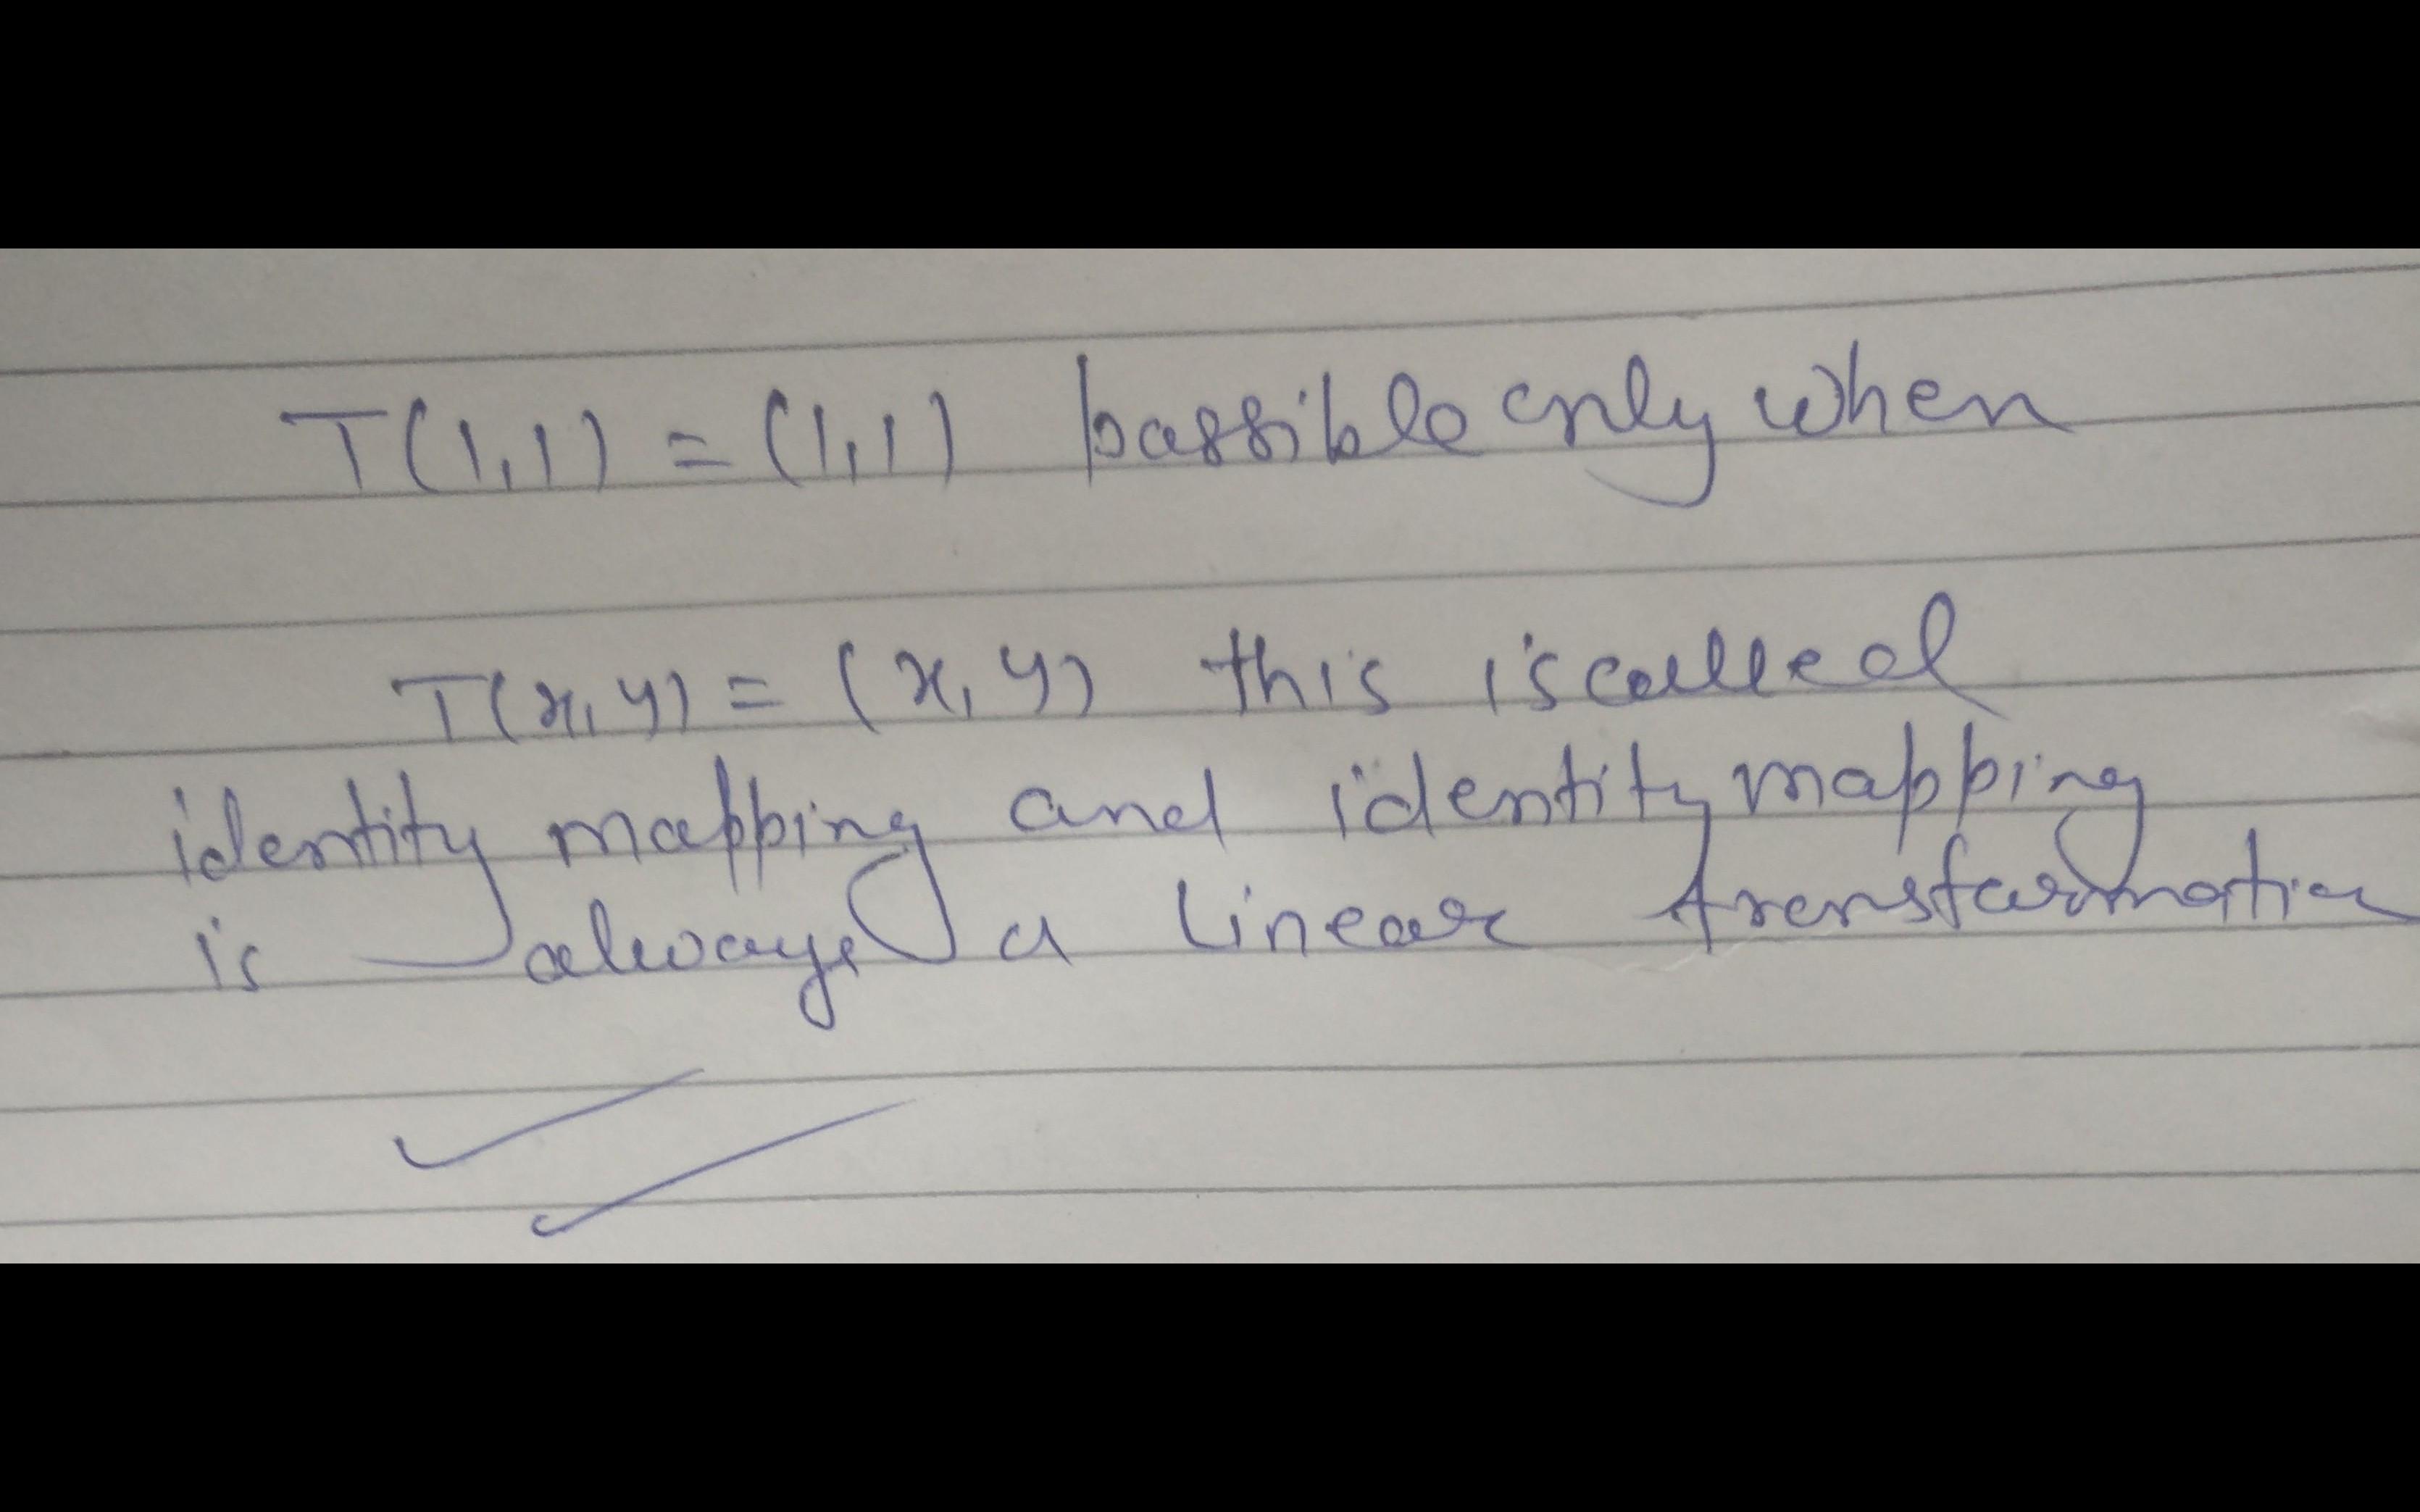 T(1,1) = (1,1) possible only when
T(x,y) = (x,y) this is called
identity mapping and identity mapping
is always a linear transformation